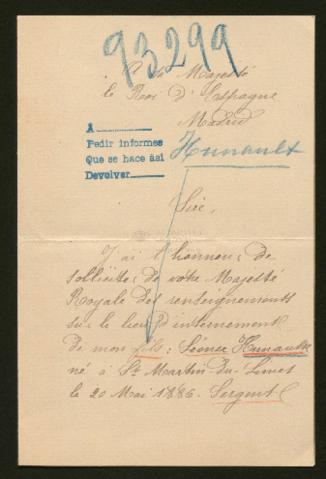 93299
A Sa Majesté
le Roi d'Espagne
Madrid
A
Pedir informes
Que se hace ási
Devolver
Hunault
Sire,
J'ai l'honneur de
solliciter de votre Majesté
Royale des renseignements
sur le lieu d'internement
de mon fils : Léonce Hunault
né à St Martin-du-Limet
le 20 Mai 1886. Sergent